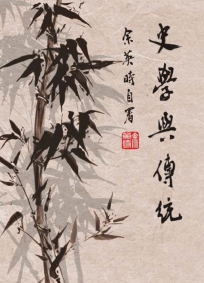 史學與傳統
余英時自署